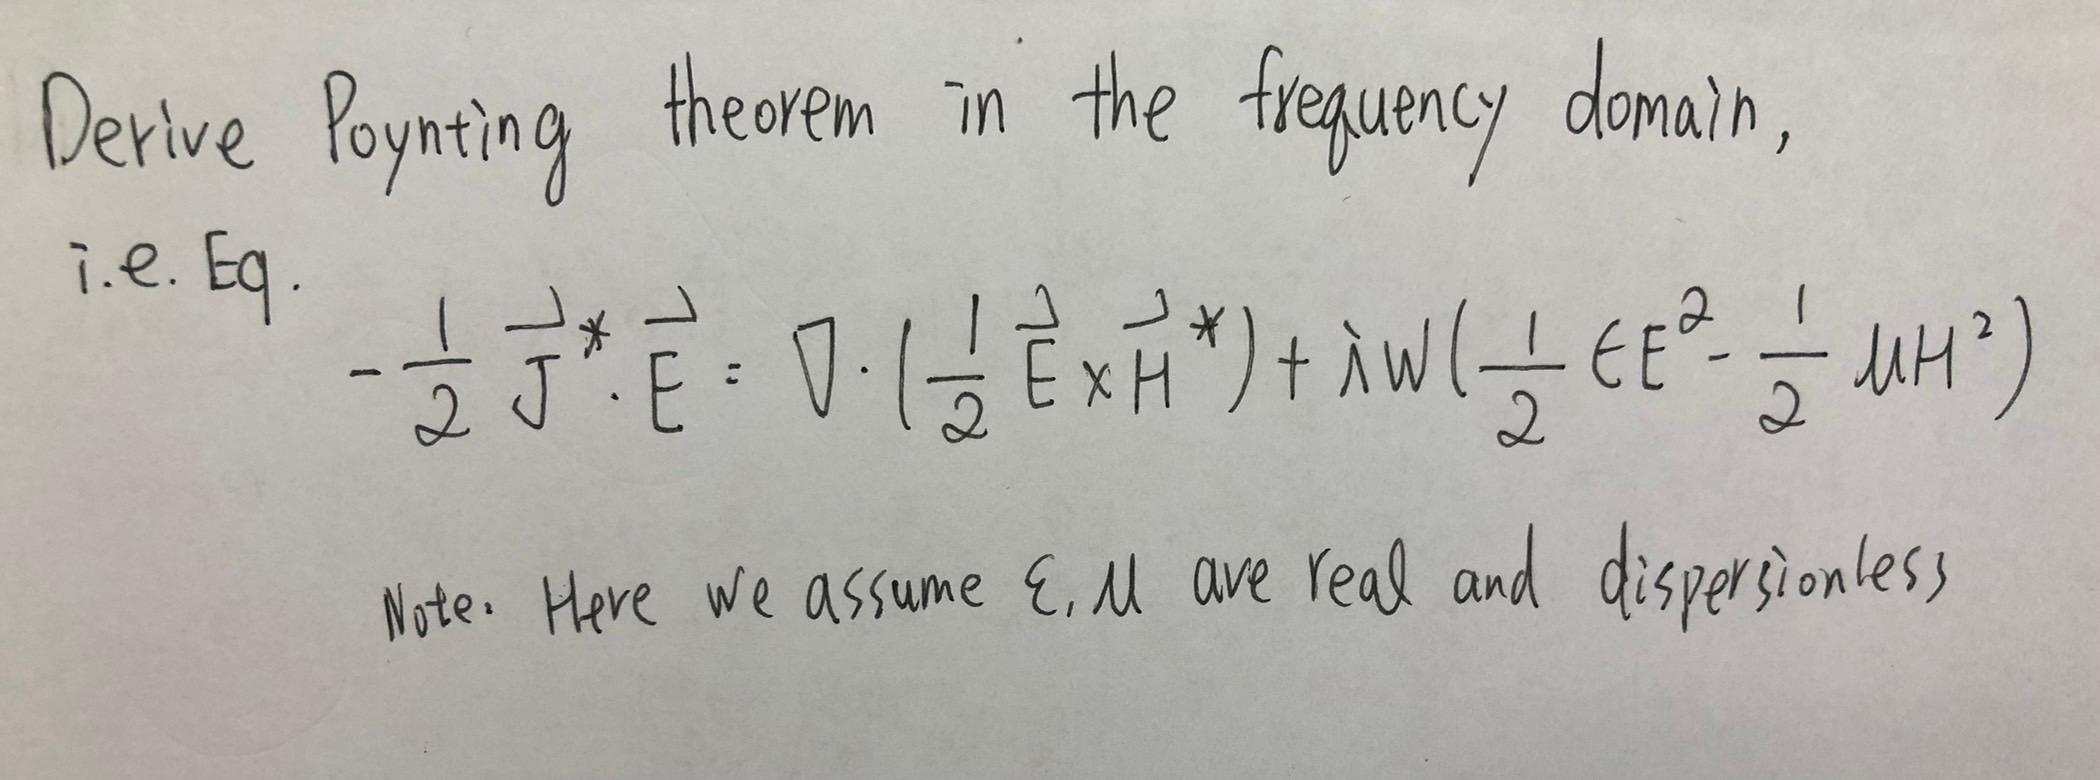 Derive Poynting theorem in the frequency domain,
i.e. Eq.
-\frac{1}{2} \vec{J}^* \cdot \vec{E} = \nabla \cdot (\frac{1}{2} \vec{E} \times \vec{H}^*) + iω(\frac{1}{2} ϵE^2 - \frac{1}{2} μH^2)
Note. Here we assume ε, μ are real and dispersionless